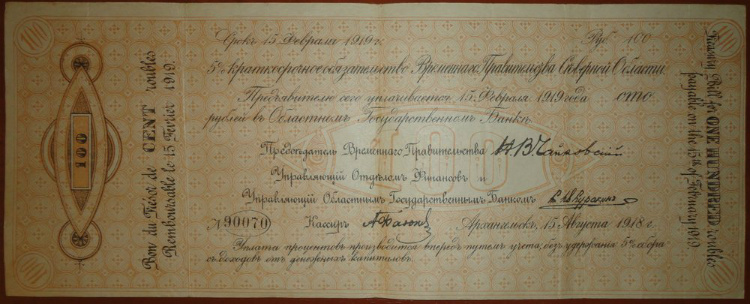 100
100
Срокъ 15 Февраля 1919 г.
Руб. 100
5% краткосрочное обязательство Временнаго Правительства Сѣверной Области
Предъявителю сего уплачивается 15 Февраля 1919 года сто
рублей въ Областномъ Государственномъ Банкѣ.
100
Предсѣдатель Временнаго Правительства Н. В. Чайковскій
Управляющій Отдѣломъ Финансовъ и
Управляющій Областнымъ Государственнымъ Банкомъ
А 90070
Кассиръ
Архангельскъ, 15 Августа 1918 г.
Уплата процентовъ производится впередъ путемъ учета, безъ удержанія 5% сбора
съ доходовъ отъ денежныхъ капиталовъ.
100
Bon du Trésor de CENT roubles
Remboursable le 15 Février 1919.
Treasury Bill for ONE HUNDRED roubles
payable on the 15th of February 1919.
100
100